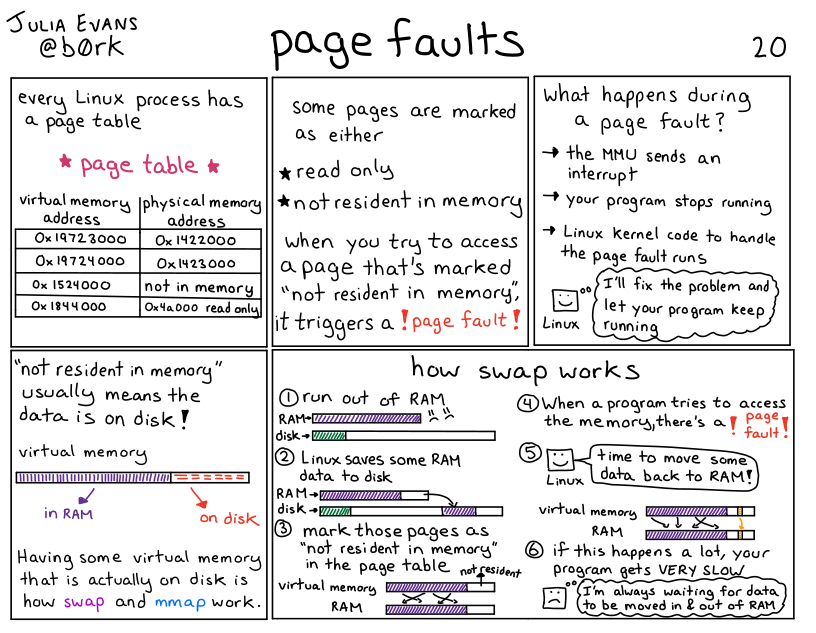 JULIA EVANS
@bØrk
page faults
20
every Linux process has
a page table
★ page table ★
virtual memory
address
physical memory
address
0x19723000 0x1422000
0x19724000 0x1423000
0x1524000 not in memory
0x1844000 0x4a000 read only
some pages are marked
as either
★ read only
★ not resident in memory
when you try to access
a page that's marked
"not resident in memory",
it triggers a ! page fault !
what happens during
a page fault?
→ the MMU sends an
interrupt
→ your program stops running
→ Linux kernel code to handle
the page fault runs
I'll fix the problem and
let your program keep
running
Linux
"not resident in memory"
usually means the
data is on disk!
virtual memory
in RAM
on disk
Having some virtual memory
that is actually on disk is
how swap and mmap work.
how swap works
① run out of RAM
RAM→
disk→
② Linux saves some RAM
data to disk
RAM→
disk→
③ mark those pages as
"not resident in memory"
in the page table
not resident
virtual memory
RAM
④ When a program tries to access
the memory, there's a ! page
fault !
⑤ time to move some
data back to RAM!
Linux
virtual memory
RAM
⑥ if this happens a lot, your
program gets VERY SLOW
I'm always waiting for data
to be moved in & out of RAM